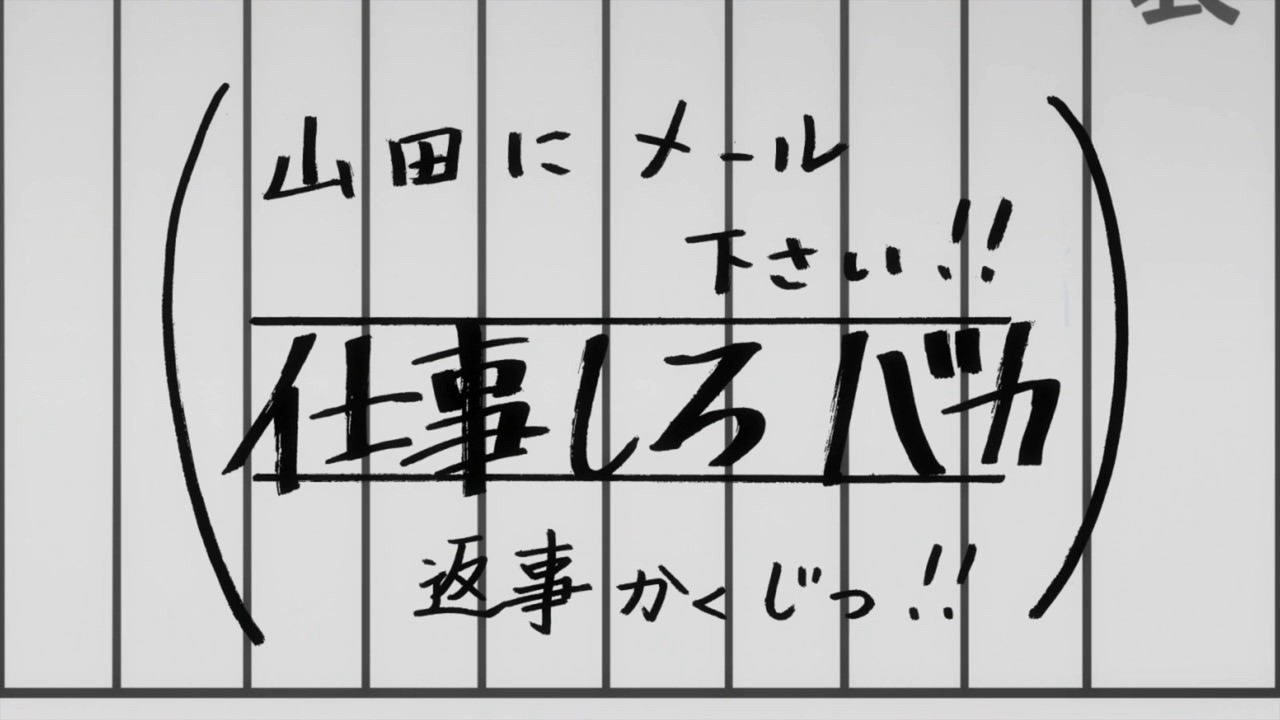 山田にメール
下さい!!
仕事しろバカ
返事かくじつ!!